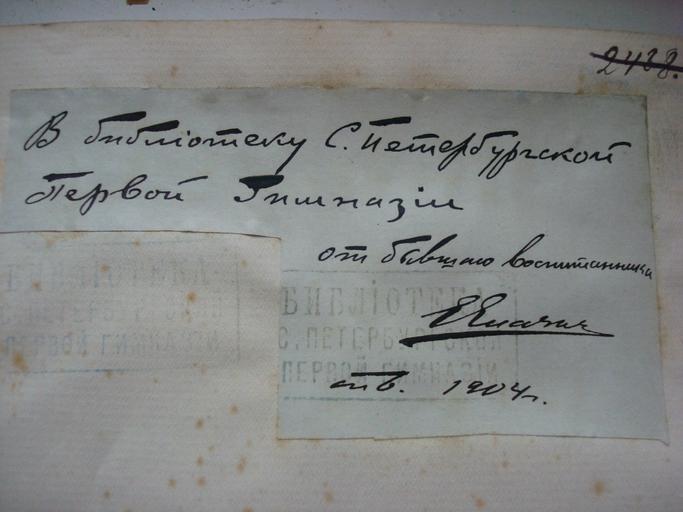 2488.
В библіотеку С. Петербургской
Первой Гимназіи
от бывшаго воспитанника
ЕЕлачич
1904 г.
БИБЛІОТЕКА
С. ПЕТЕРБУРГСКОЙ
ПЕРВОЙ ГИМНАЗІИ
БИБЛІОТЕКА
С. ПЕТЕРБУРГСКОЙ
ПЕРВОЙ ГИМНАЗІИ